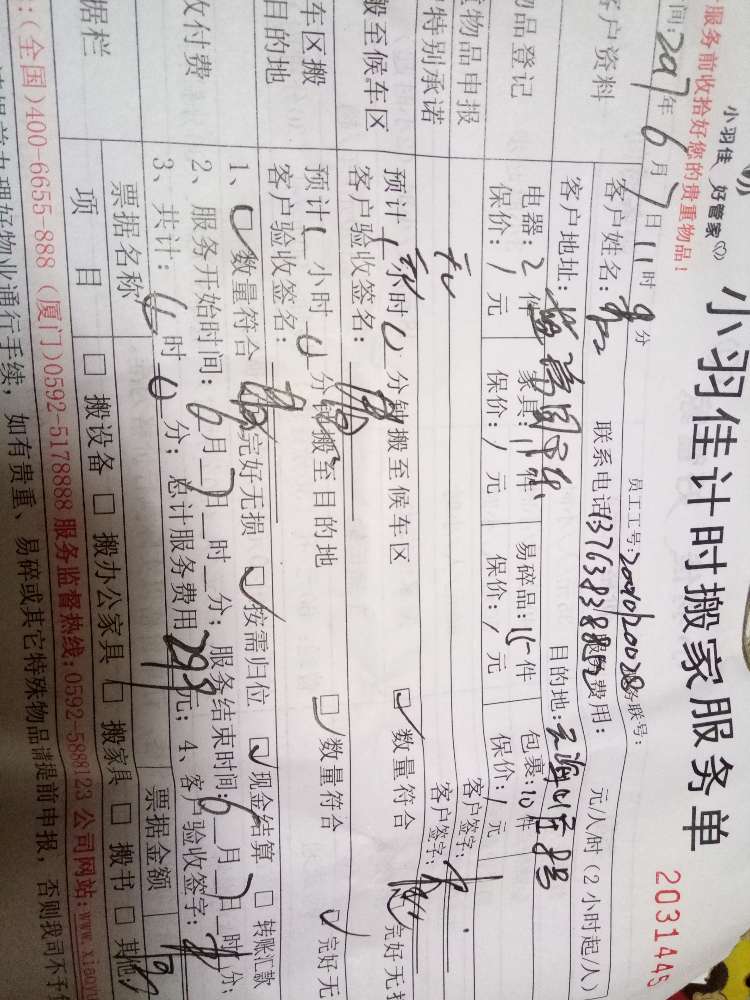 小羽佳 好管家
小羽佳计时搬家服务单
2031445
服务前收拾好您的贵重物品!
员工工号:
务联号:
间:2017年6月7日11时 分
客户资料
客户姓名:
联系电话
服务费用: 元/人/时(2小时起/人)
客户地址:
目的地:
物品登记
电器:2件 家具:11件 易碎品:15件 包裹:10件
保价:/元 保价:/元 保价:/元 保价:/元
物品申报
无
客户签字:
特别承诺
客户签字:
般至候车区
预计 小时0分钟搬至候车区 数量符合 完好无
客户验收签名:
车区搬
目的地
预计1小时0分钟搬至目的地 数量符合 完好无
客户验收签名:
收付费
1、数量符合 完好无损 按需归位 现金结算 转账汇款
2、服务开始时间:6月7日 时 分;服务结束时间:6月7日 时 分;
3、共计: 时0分;总计服务费用 元;4、客户验收签字:
据栏
票据名称
票据金额
项目
搬设备 搬办公家具 搬家具 搬书 其他
:(全国)400-6655-888(厦门)0592-5178888 服务监督热线:0592-5888123 公司网站:www.xiaoy
前办理好物业通行手续,如有贵重、易碎或其它特殊物品请提前申报,否则我司不予